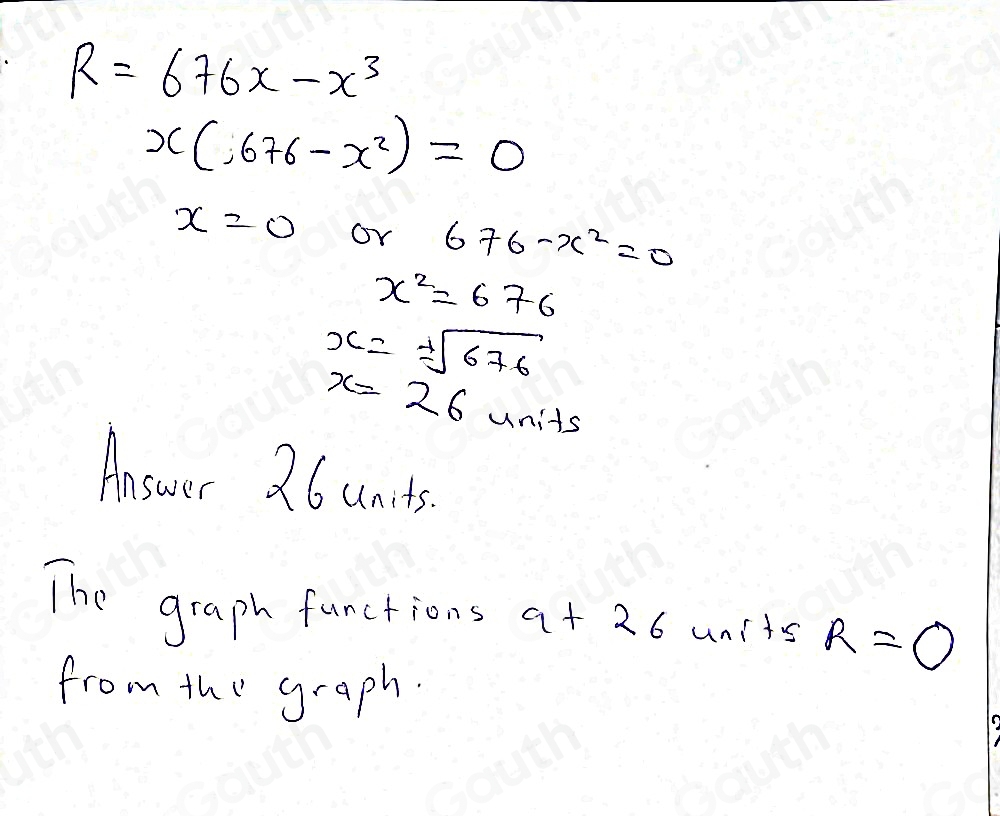 R = 676x - x³
x(676 - x²) = 0
x = 0 or 676 - x² = 0
x² = 676
x = ±√676
x = 26 units
Answer 26 units.
The graph functions at 26 units R = 0
from the graph.
Gauth